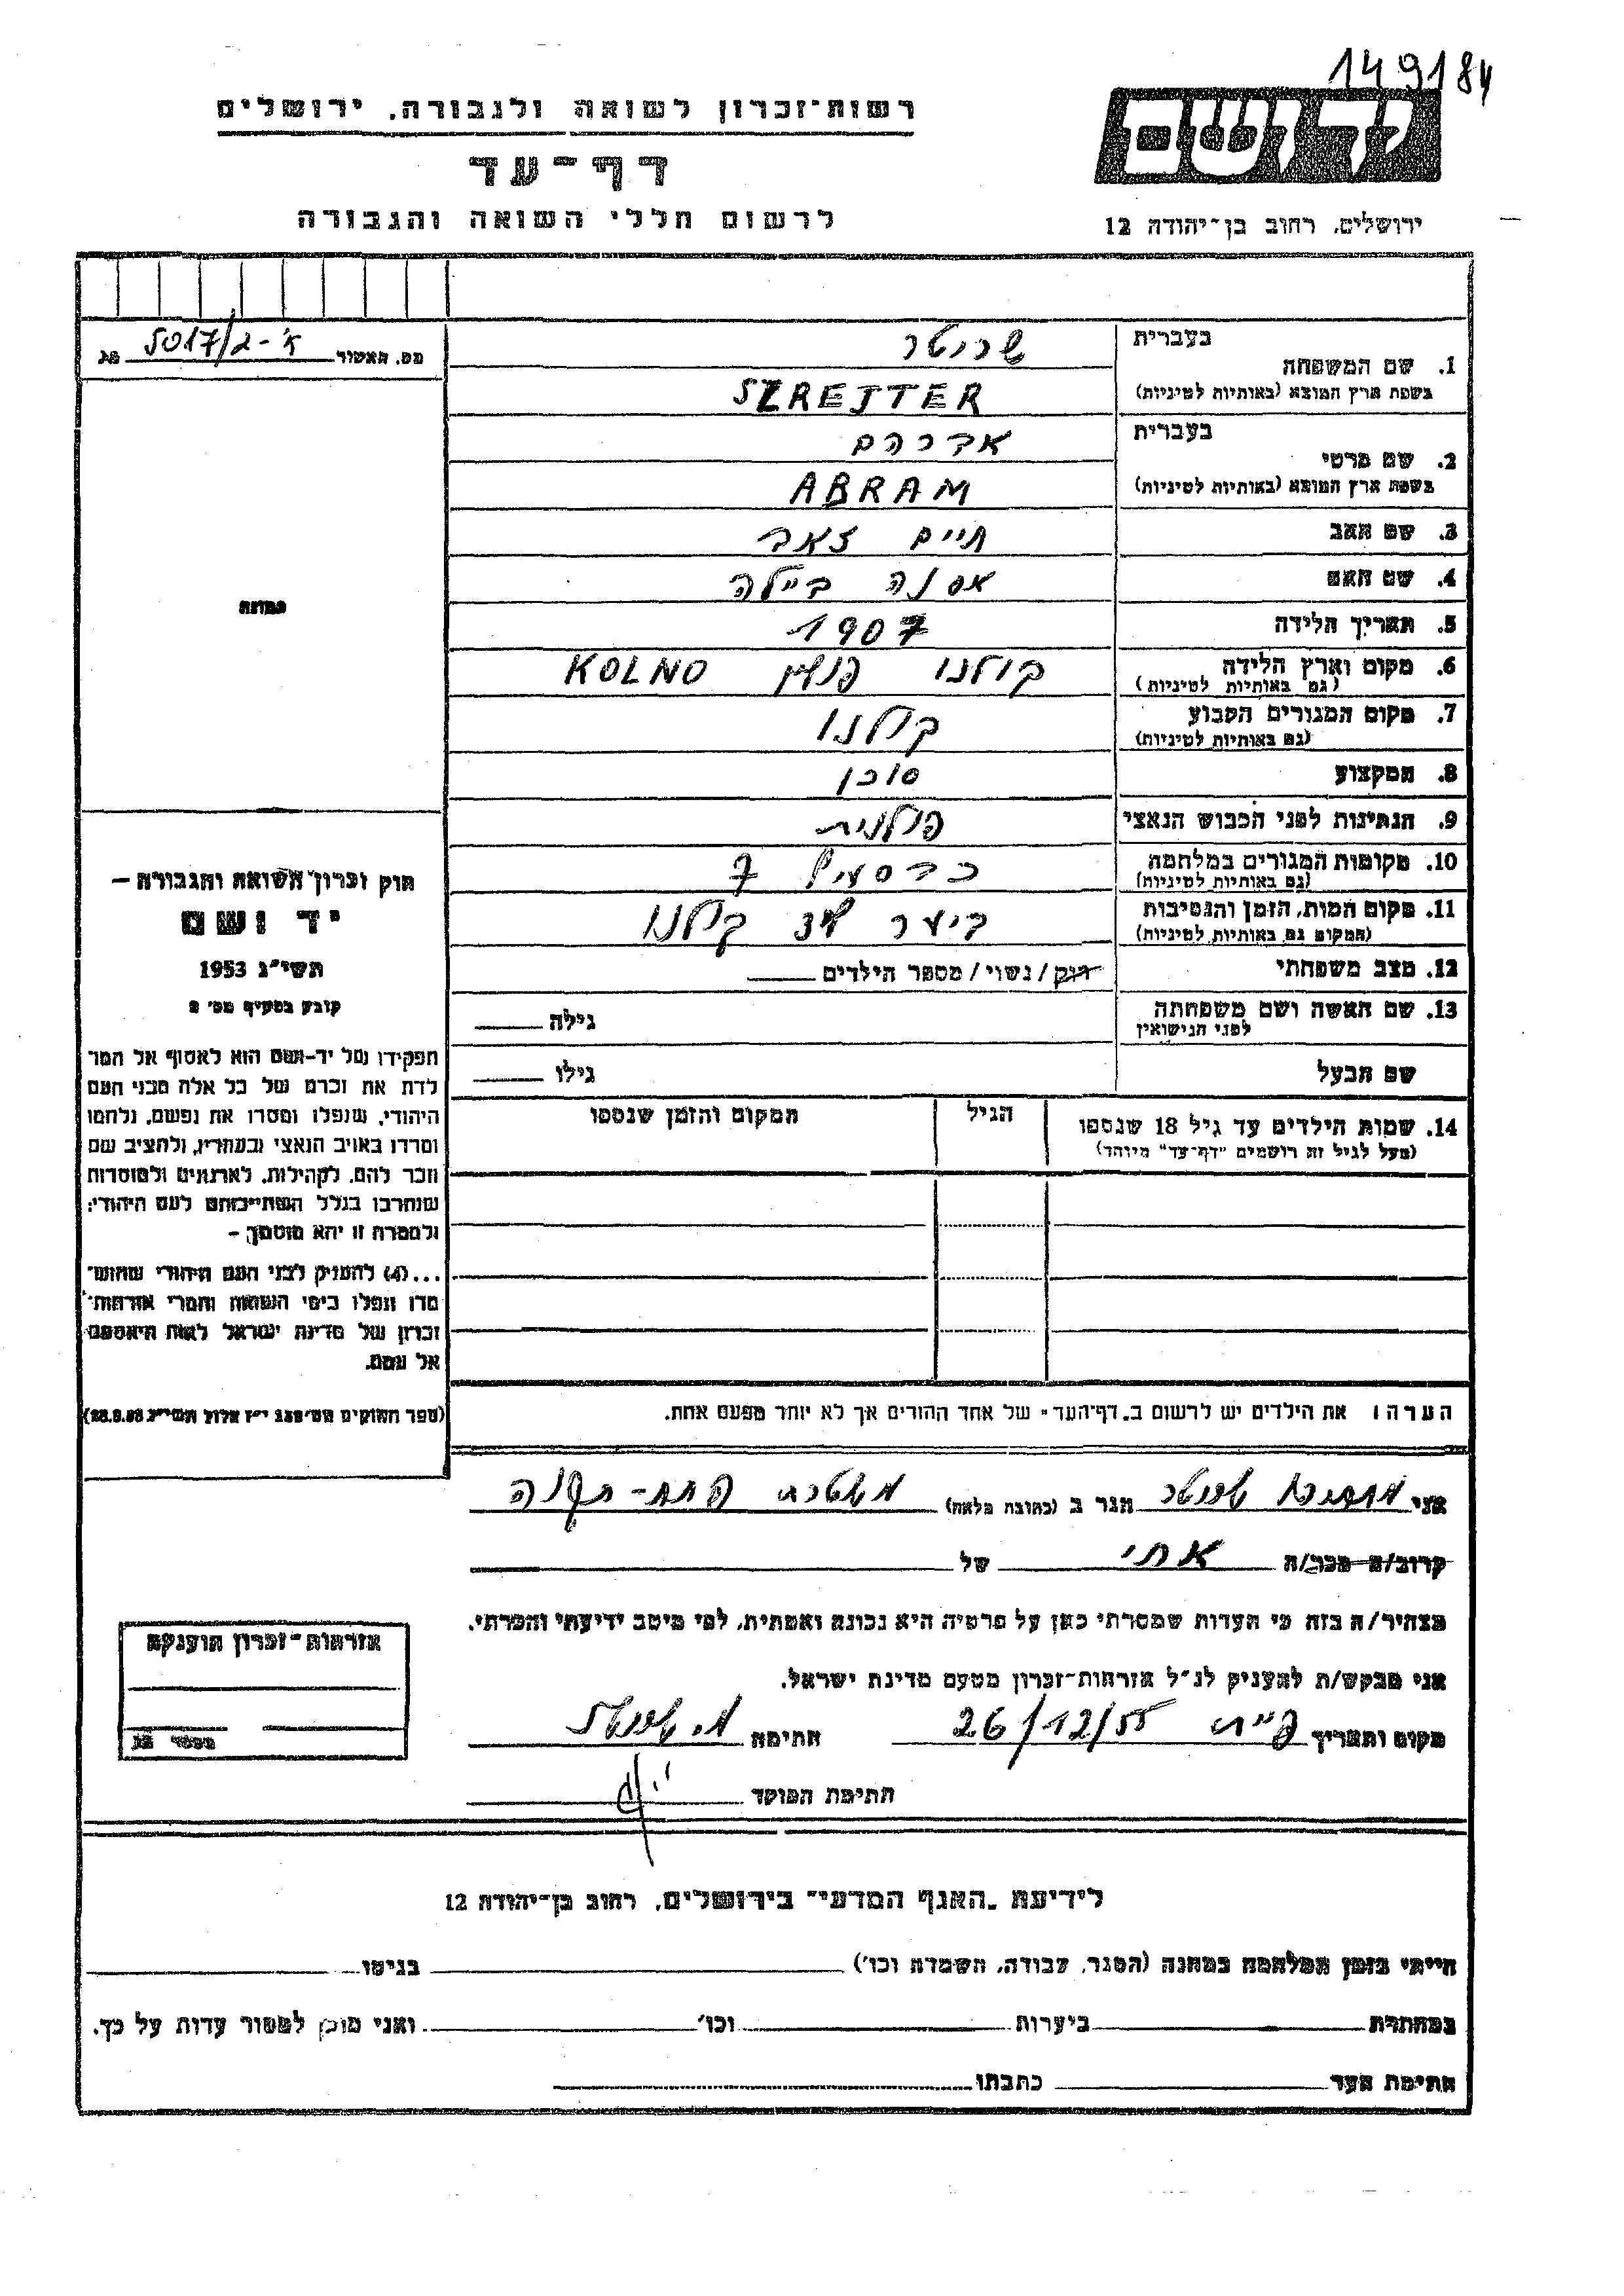 149184
רשות־זכרון לשואה ולגבורה. ירושלים
דף־עד
לרשום חללי השואה והגבורה
יד ושם
ירושלים. רחוב בן־יהודה 12
מס. האשור א'-5017/2
בעברית
1. שם המשפחה שרייטר
בשפת ארץ המוצא (באותיות לטיניות) SZREJTER
בעברית אברהם
2. שם פרטי
בשפת ארץ המוצא (באותיות לטיניות) ABRAM
3. שם האב חיים זאב
4. שם האם אסנה ביילה
5. תאריך הלידה 1907
6. מקום וארץ הלידה קולנו פולין KOLNO
(גם באותיות לטיניות)
7. מקום המגורים הקבוע קולנו
(גם באותיות לטיניות)
8. המקצוע סוכן
9. הנתינות לפני הכבוש הנאצי פולנית
10. מקומות המגורים במלחמה כבסעיף 7
(גם באותיות לטיניות)
11. מקום המות, הזמן והנסיבות ביער ליד קולנו
(המקום גם באותיות לטיניות)
12. מצב משפחתי רוק / נשוי / מספר הילדים
13. שם האשה ושם משפחתה גילה
לפני הנישואין
שם הבעל גילו
14. שמות הילדים עד גיל 18 שנספו הגיל המקום והזמן שנספו
(מעל לגיל זה רושמים "דף־עד" מיוחד)
הערה: את הילדים יש לרשום ב„דף־העד" של אחד ההורים אך לא יותר מפעם אחת.
תמונה
חוק זכרון השואה והגבורה —
יד ושם
תשי"ג 1953
קובע בסעיף מס' 2
תפקידו של יד-ושם הוא לאסוף אל המו
לדת את זכרם של כל אלה מבני העם
היהודי, שנפלו ומסרו את נפשם, נלחמו
ומרדו באויב הנאצי ובעוזריו, ולהציב שם
וזכר להם, לקהילות, לארגונים ולמוסדות
שנחרבו בגלל השתייכותם לעם היהודי;
ולמטרה זו יהא מוסמך —
...(4) להעניק לבני העם היהודי שהוש־
מדו ונפלו בימי השואה והמרי אזרחות־
זכרון של מדינת ישראל לאות היאספם
אל עמם.
אני שרייטר הגר ב (כתובת מלאה) פתח-תקוה
קרוב/ה מכר/ה אחי של
מצהיר/ה בזה כי העדות שמסרתי כאן על פרטיה היא נכונה ואמתית, לפי מיטב ידיעתי והכרתי.
אני מבקש/ת להעניק לנ"ל אזרחות־זכרון מטעם מדינת ישראל.
מקום ותאריך 26/12/55 חתימה
חתימת הפוקד
אזרחות־זכרון הוענקה
לידיעת „האגף המדעי" בירושלים, רחוב בן־יהודה 12
הייתי בזמן המלחמה במחנה (הסגר, עבודה, השמדה וכו') בגיטו
במחתרת ביערות וכו' ואני מוכן למסור עדות על כך.
חתימת העד כתבתו